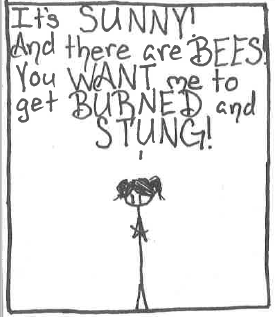 It's SUNNY!
And there are BEES!
You WANT me to
get BURNED and
STUNG!